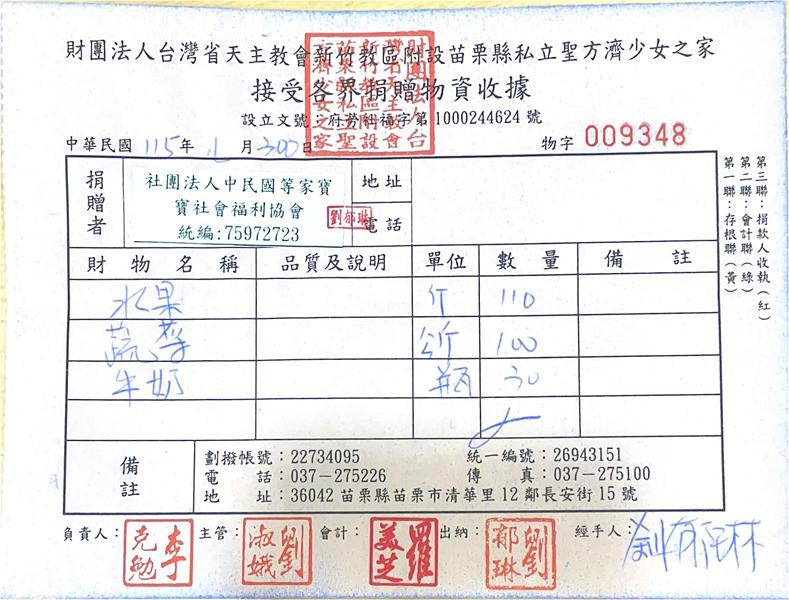 財團法人台灣省天主教會新竹教區附設苗栗縣私立聖方濟少女之家
接受各界捐贈物資收據
設立文號：府勞社福字第1000244624號
中華民國 115 年 月 30 日 物字 009348
捐贈者
社團法人中民國等家寶
寶社會福利協會
統編:75972723
劉郁琳
地址
電話
財物名稱 品質及說明 單位 數量 備註
水果 斤 110
蔬菜 公斤 100
牛奶 瓶 30
備註
劃撥帳號：22734095 統一編號：26943151
電話：037-275226 傳真：037-275100
地址：36042 苗栗縣苗栗市清華里12鄰長安街15號
負責人： 李克勉 主管： 劉淑娥 會計： 羅美芝 出納： 劉郁琳 經手人： 劉郁琳
第三聯：捐款人收執(紅)
第二聯：會計聯(綠)
第一聯：存根聯(黃)